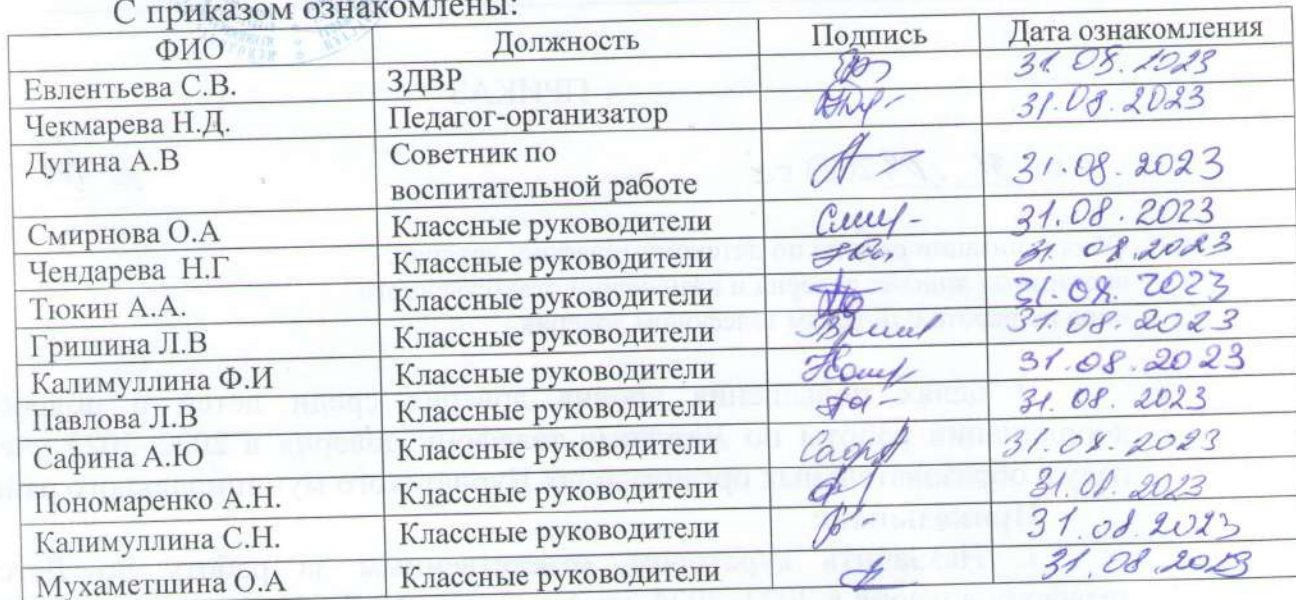 С приказом ознакомлены:
ФИО Должность Подпись Дата ознакомления
Евлентьева С.В. ЗДВР 31.08.2023
Чекмарева Н.Д. Педагог-организатор 31.08.2023
Дугина А.В Советник по
воспитательной работе 31.08.2023
Смирнова О.А Классные руководители 31.08.2023
Чендарева Н.Г Классные руководители 31.08.2023
Тюкин А.А. Классные руководители 31.08.2023
Гришина Л.В Классные руководители 31.08.2023
Калимуллина Ф.И Классные руководители 31.08.2023
Павлова Л.В Классные руководители 31.08.2023
Сафина А.Ю Классные руководители 31.08.2023
Пономаренко А.Н. Классные руководители 31.08.2023
Калимуллина С.Н. Классные руководители 31.08.2023
Мухаметшина О.А Классные руководители 31.08.2023